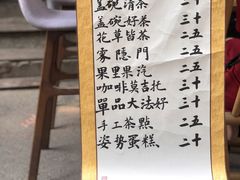 盖碗清茶 二十
盖碗好茶 三十
花草皆茶 二五
家隐門 二五
果里果汽 二五
咖啡莫吉托 三十
單品大法好 三十
手工茶點 二五
姿势蛋糕 二十